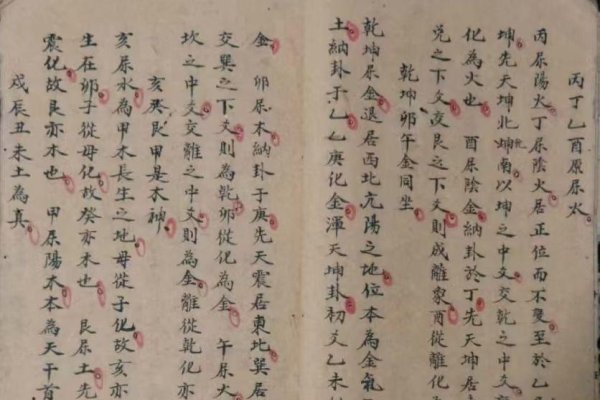 丙丁乙酉原属火
丙属陽火丁属陰火居正位而不變至於乙
坤先天坤北乾南以坤之中爻交乾之中爻
化為火也 酉属陰金納卦於丁先天坤居
兌之下爻交艮之下爻則成離象酉從離化
乾坤卯午金同坐
乾坤属金退居西北亢陽之地位本為金氣
土納卦于乙乙庚化金渾天坤卦初爻乙未
金 卯属木納卦于庚先天震居東北巽居
交巽之下爻則為乾卯從化為金 午属火
坎之中爻交離之中爻則為金離從乾化亦
亥癸艮甲是木神
亥属水為甲木長生之地母從子化故亥亦
生在卯子從母化故癸亦木也 艮属土先
震化故艮亦木也 甲属陽木本為天干首
戌辰丑未土為真